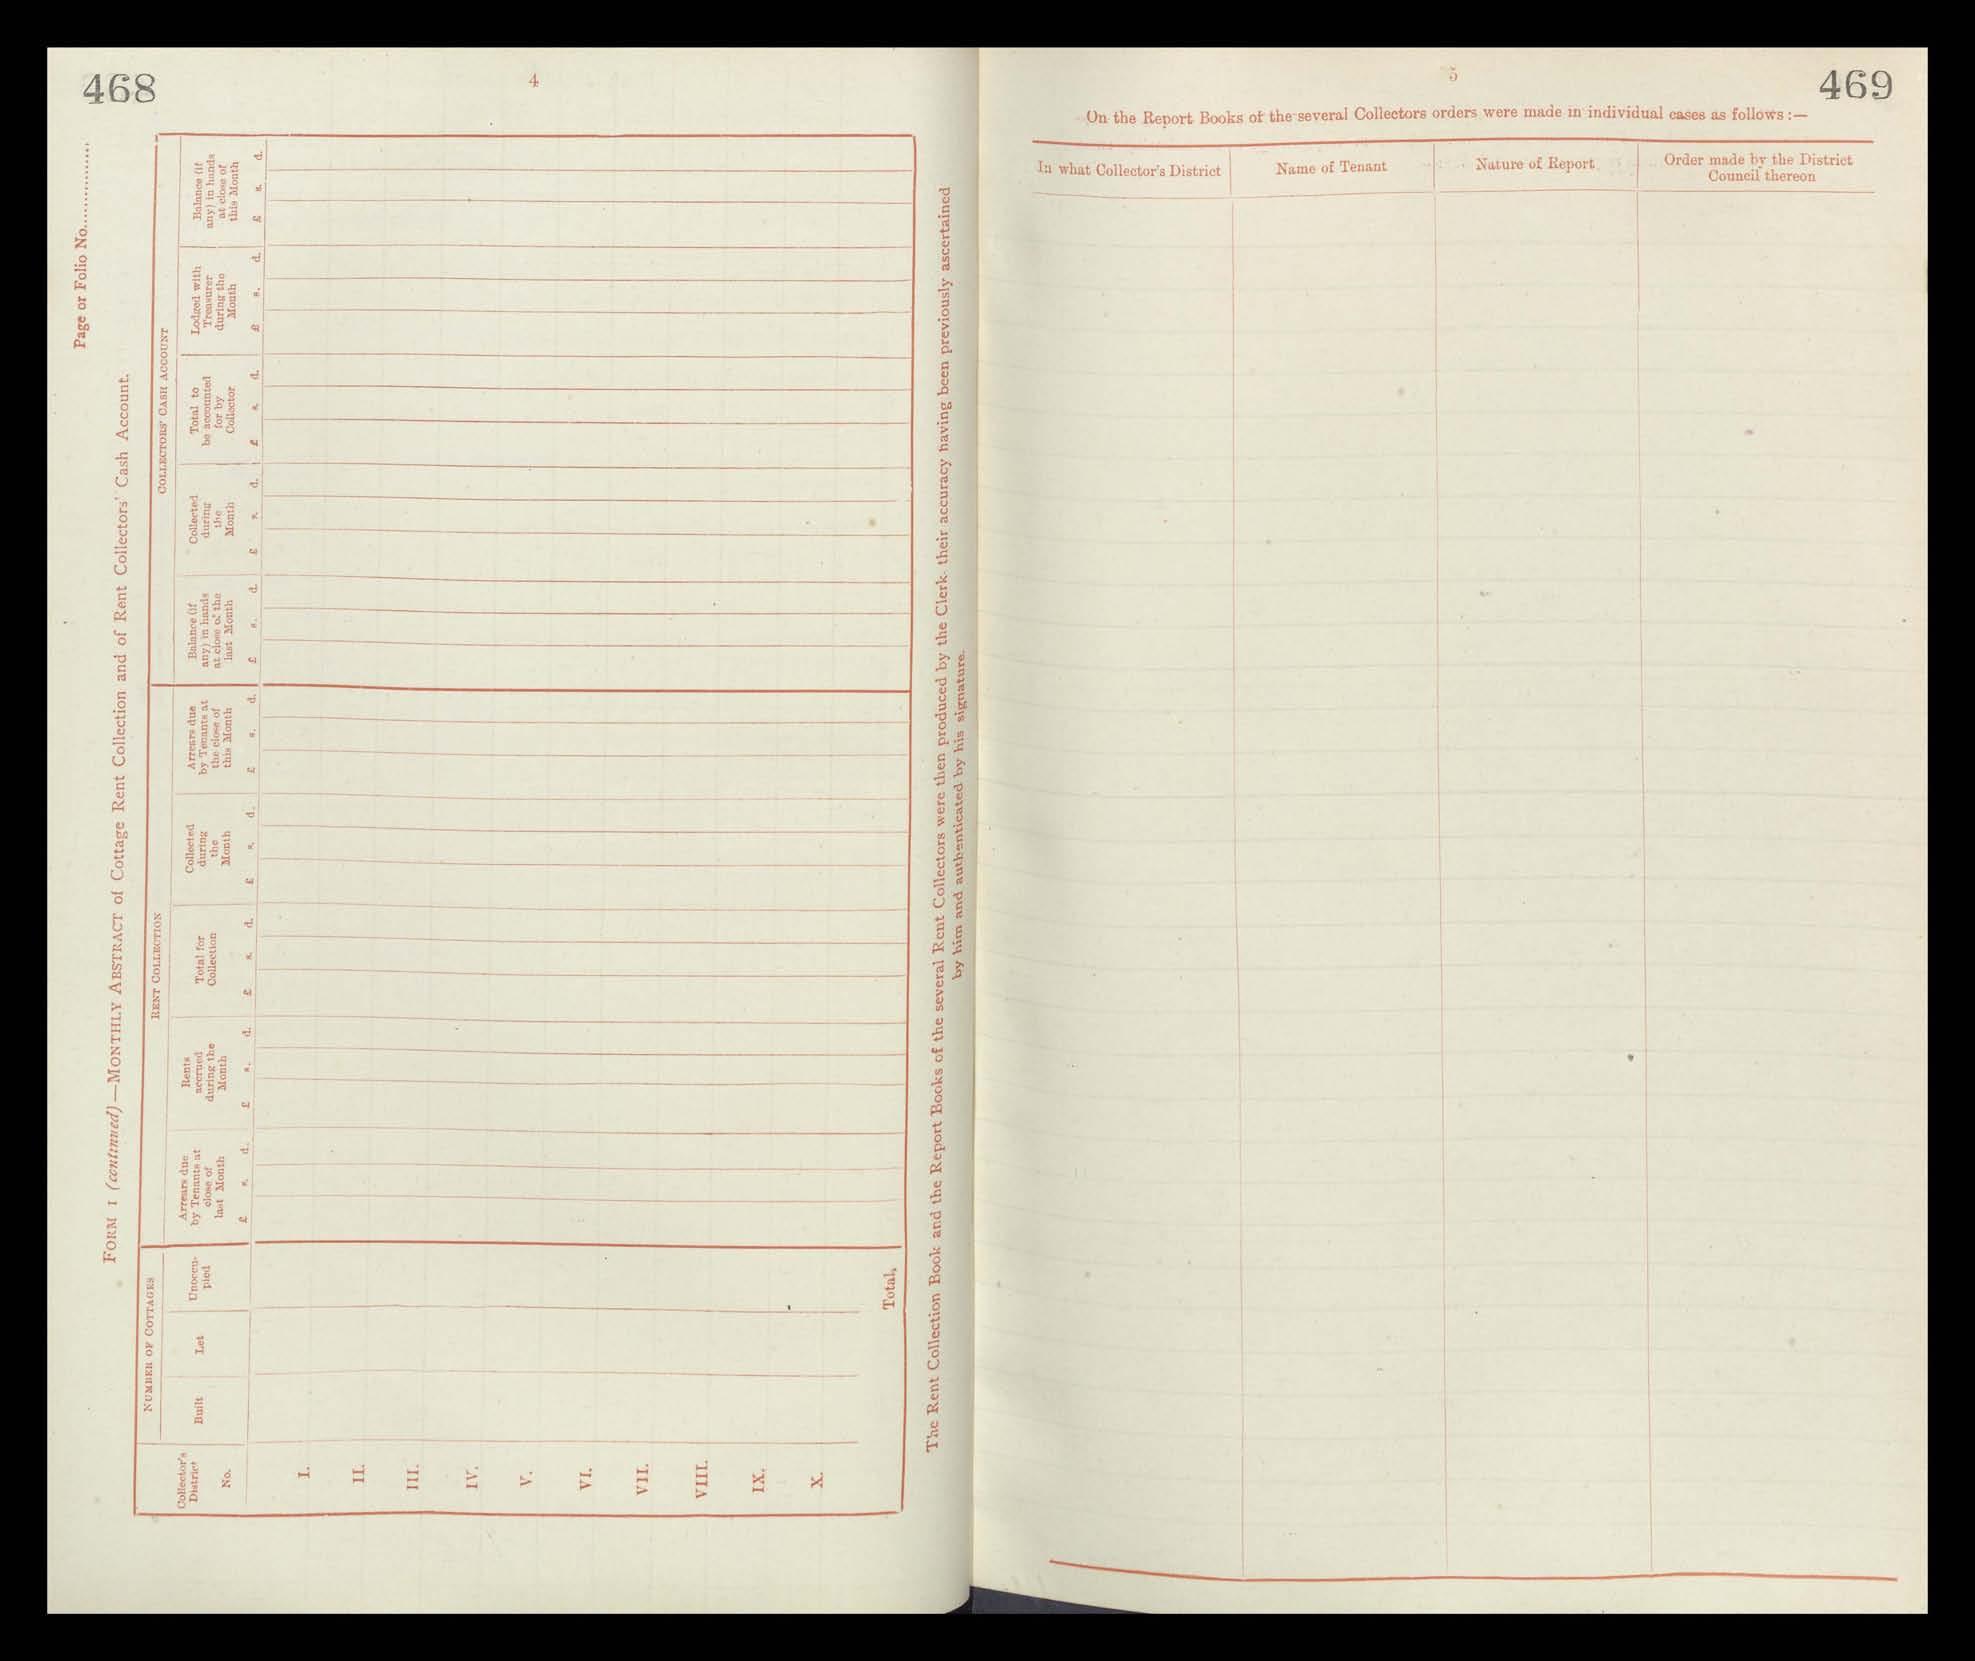 468
4
Page or Folio No................
FORM 1 (continued)—MONTHLY ABSTRACT of Cottage Rent Collection and of Rent Collectors' Cash Account.
NUMBER OF COTTAGES
RENT COLLECTION
COLLECTORS' CASH ACCOUNT
Collector's
District
No.
Built
Let
Unoccu-
pied
Arrears due
by Tenants at
close of
last Month
£ s. d.
Rents
accrued
during the
Month
£ s. d.
Total for
Collection
£ s. d.
Collected
during
the
Month
£ s. d.
Arrears due
by Tenants at
the close of
this Month
£ s. d.
Balance (if
any) in hands
at close of the
last Month
£ s. d.
Collected
during
the
Month
£ s. d.
Total to
be accounted
for by
Collector
£ s. d.
Lodged with
Treasurer
during the
Month
£ s. d.
Balance (if
any) in hands
at close of
this Month
£ s. d.
I.
II.
III.
IV.
V.
VI.
VII.
VIII.
IX.
X.
Total,
The Rent Collection Book and the Report Books of the several Rent Collectors were then produced by the Clerk, their accuracy having been previously ascertained
by him and authenticated by his signature.
5
469
On the Report Books of the several Collectors orders were made in individual cases as follows :—
In what Collector's District
Name of Tenant
Nature of Report
Order made by the District
Council thereon